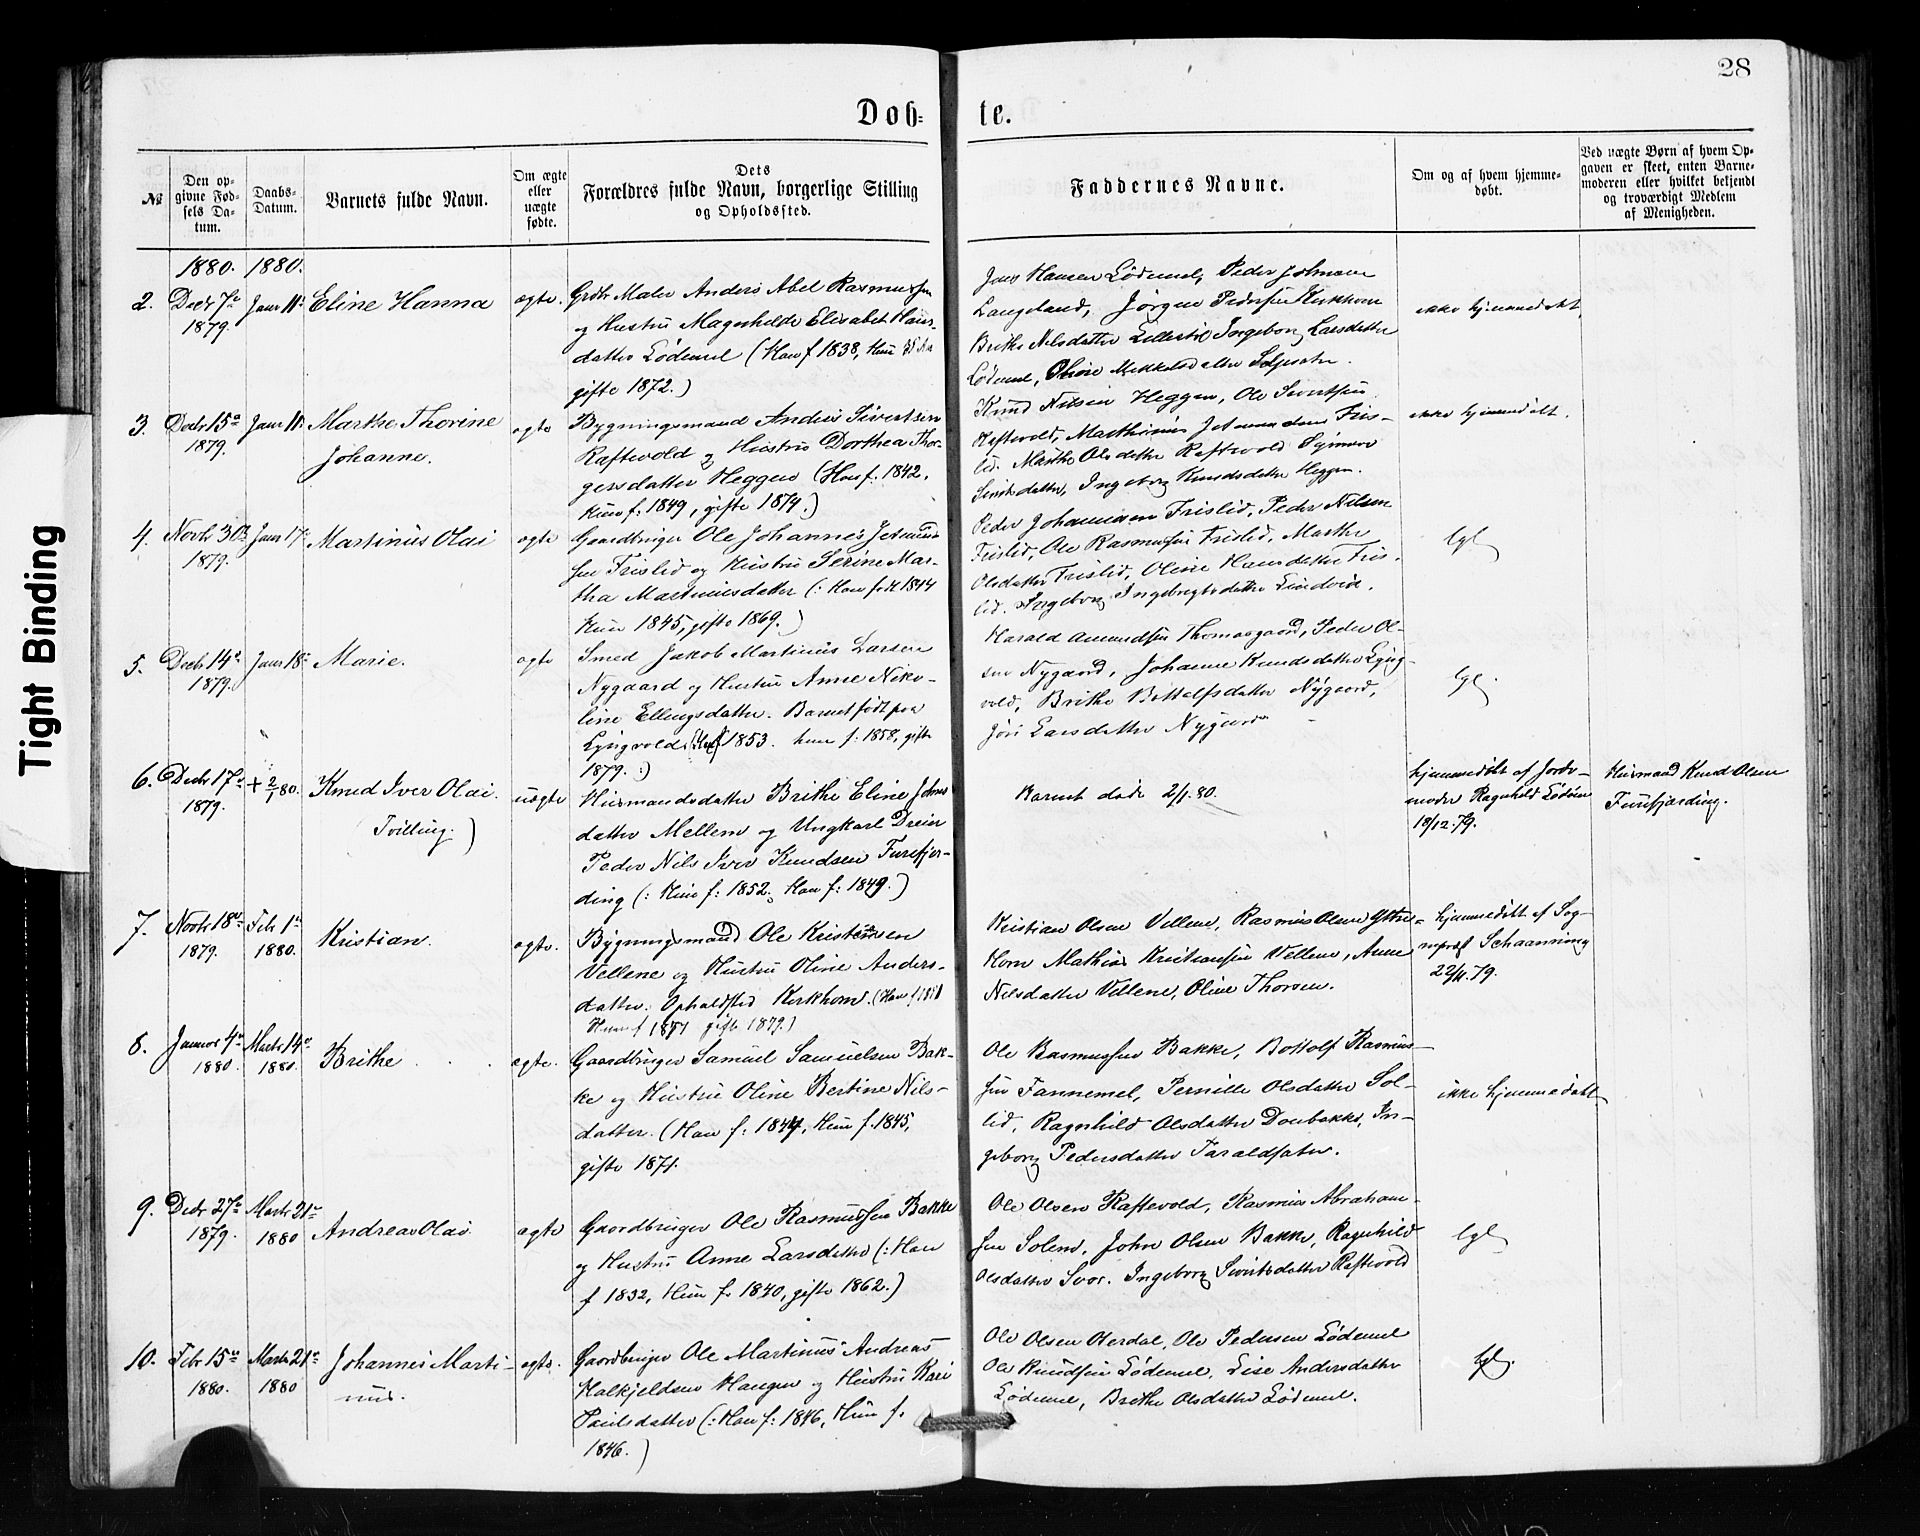 28
Døb= te.
№
Den opgivne Fødsels Datum.
Daabs-Datum.
Barnets fulde Navn.
Om ægte eller uægte fødte.
Dets Forældres fulde Navn, borgerlige Stilling og Opholdssted.
Faddernes Navne.
Om og af hvem hjemmedøbt.
Ved uægte Børn af hvem Opgaven er skeet, enten Barnemoderen eller hvilket bekjendt og troværdigt Medlem af Menigheden.
1880. 1880.
2. Decbr 7de 1879. Janr 11te Eline Hanna ægte.
Maler Anders Abel Rasmussen
og Hustru Magnhilde Elisabet Hans-
datter Lødemel (Han f 1838, Hun
gifte 1872.)
Jens Hansen Lødemel, Peder Johnsen
Langeland, Jørgen Pedersen Kirkhorn
Brithe Nilsdatter Ingeborg Larsdatter
Lødemel, Mikkelsdatter
ikke hjemmedøbt.
3. Decbr 15de 1879. Janr 11te Marthe Thorine
Johanne. ægte
Bygningsmand Anders Sivertsen
Raftevold og Hustru Dorthea Thor-
gersdatter Heggen (Han f. 1842,
Hun f: 1849, gifte 1874.)
Knud Nilsen Heggen, Ole Sivertsen
Raftevold, Marthinus Fris-
lid. Marthe Olsdatter Raftevold
Sivertsdatter, Ingeborg Knudsdatter Heggen.
ikke hjemmedøbt.
4. Novbr 30te 1879. Janr 17de Martinus Olai ægte
Gaardbruger Ole Johannes Jetmund-
sen Frislid og Hustru Serine Mar-
tha Martinusdatter (: Han født 1844
Hun 1845, gifte 1869.)
Peder Johannesen Frislid, Peder Nilsen
Frislid, Ole Rasmussen Frislid, Marthe
Olsdatter Frislid, Oline Hansdatter Fris-
lid. Ingeborg Ingebregtsdatter Lindvik.
lgl
5. Decbr 14de 1879. Janr 18de Marie. ægte
Smed Jakob Martinus Larsen
Nygaard og Hustru Anne Niko-
line Ellingsdatter. Barnet født paa
Lyngvold (Han f 1853. hun f: 1858, gifte
1879.:)
Harald Amundsen Thomasgaard, Peder Ol-
sen Nygaard, Johanne Knudsdatter Lyng-
vold, Brithe Bottolfsdatter Nygaard,
Jøri Larsdatter Nygaard
lgl.
6. Decbr 17de 1879. + 2/1 80. Knud Iver Olai.
Tvilling.) uægte
Husmandsdatter Brithe Eline Johns-
datter Mellem og Ungkarl
Peder Nils Iver Knudsen Furefjær-
ding (: Hun f: 1852, Han f: 1849.)
Barnet døde 2/1.80.
hjemmedøbt af Jorde-
moder Ragnhild Lødøen
18/12.79.
Husmand Knud Olsen
Furefjærding.
7. Novbr 18de 1879. Feb. 1ste 1880. Kristian. ægte.
Bygningsmand Ole Kristensen
Vellene og Hustru Oline Anders-
datter. Opholdsted Kirkhorn.
gifte 1879.)
Kristian Olsen Vellene, Rasmus Olsen Yttre-
Horn Mathias Kristiansen Vellene, Anne
Nilsdatter Vellene, Oline Thorsen.
hjemmedøbt af Sog-
nepræst Schaanning
22/11.79.
8. Januar 4de 1880. Marts 14de 1880. Brithe ægte.
Gaardbruger Samuel Samuelsen Bak-
ke og Hustru Oline Bertine Nils-
datter. (Han f: 1844, Hun f. 1845,
gifte 1871.
Ole Rasmussen Bakke, Bottolf Rasmus-
sen Fannemel, Pernille Olsdatter Sol-
lid, Ragnhild Olsdatter Doubakke, In-
geborg Pedersdatter Taraldsater.
ikke hjemmedøbt
9. Decbr 27de 1879. Marts 21de 1880 Andreas Olai ægte
Gaardbruger Ole Rasmussen Bakke
og Hustru Anne Larsdatter (: Han
f 1832, Hun f. 1840, gifte 1862.)
Ole Olsen Raftevold, Rasmus Abraham-
sen Solem, John Olsen Bakke, Ragnhild
Olsdatter Svor. Ingeborg Sivertsdatter Raftevold
lgl
10. Febr 15de 1880. Marts 21de 1880 Johannes Marti-
nus. ægte.
Gaardbruger Ole Martinus Andreas
Halkjeldsen Haugen og Hustru Kari
Paulsdatter (: Han f: 1846, Hun f.
1846.)
Ole Olsen Otterdal, Ole Pedersen Lødemel
Ole Knudsen Lødemel, Lise Andersdatter
Lødemel, Brithe Olsdatter Lødemel.
lgl.
Tight Binding